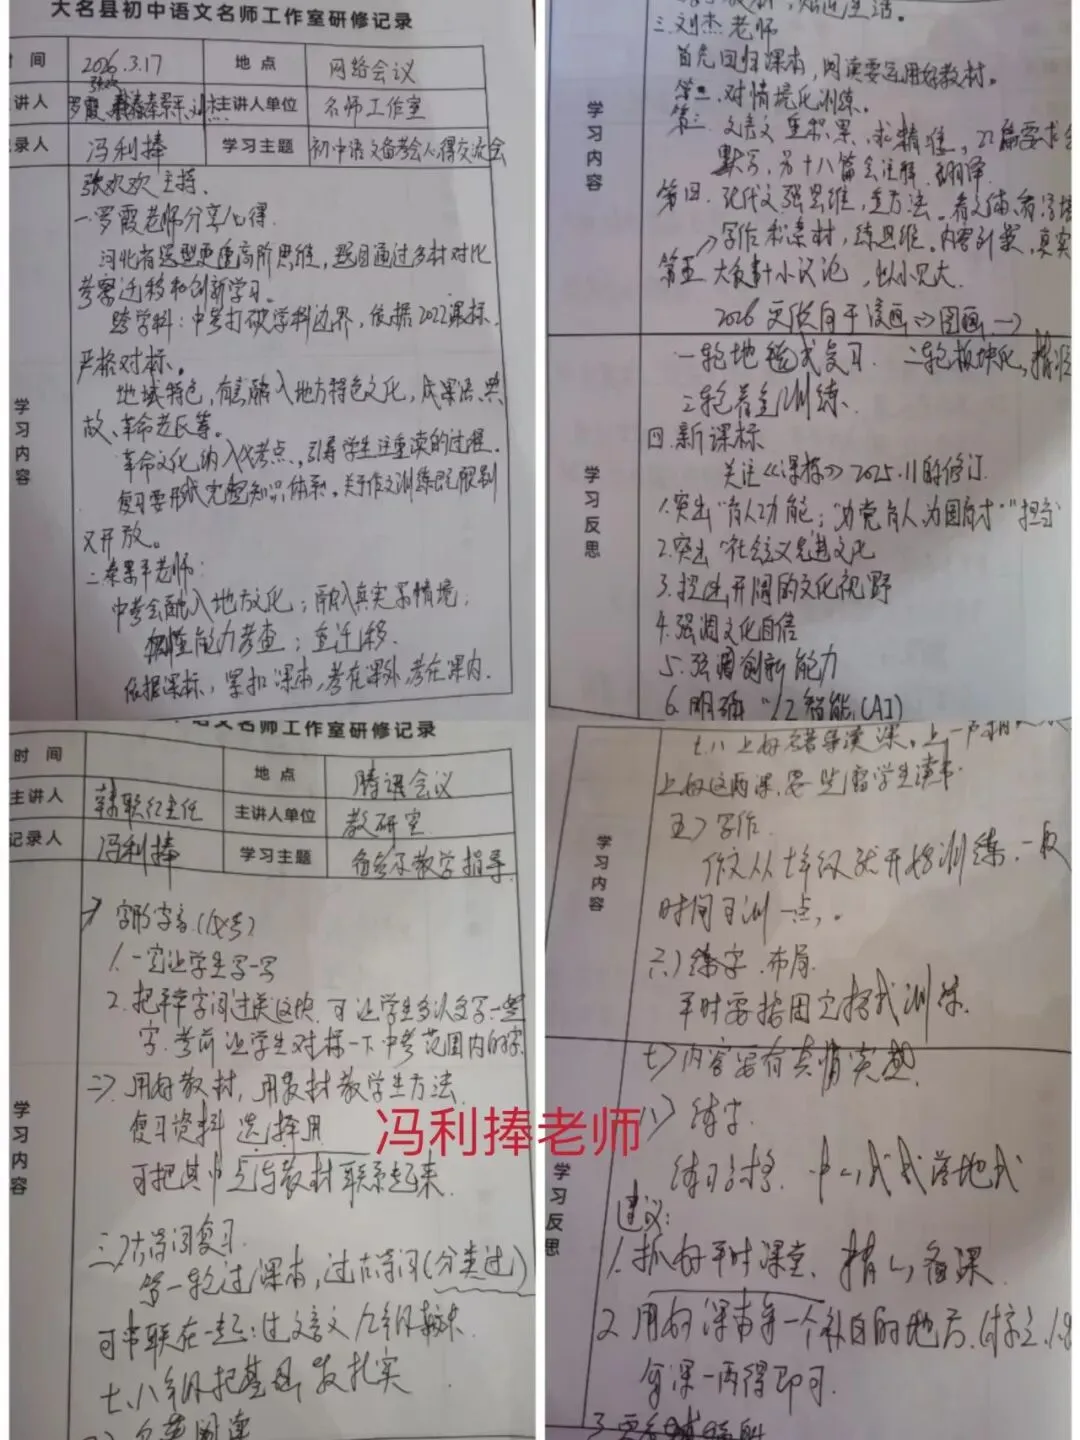 大名县初中语文名师工作室研修记录
间 2026.3.17 地点 网络会议
讲人 罗霞、秦景平、刘杰 主讲人单位 名师工作室
张欢
录人 冯利捧 学习主题 初中语文备考会心得交流会
学习内容
张欢欢主持.
一.罗霞老师分享心得.
河北省选型更重高阶思维，题目通过多材对比
考察迁移和创新学习。
跨学科：中考打破学科边界，依据2022课标，
严格对标。
地域特色，有意融入地方特色文化，成果语、典
故、革命老区等。
革命文化纳入必考点，引导学生注重读的过程.
复习要形成完整知识体系。关于作文训练既限制
又开放。
二.秦景平老师：
中考会融入地方文化；融入真实情境；
能力考查；重迁移.
依据课标，紧扣课本，考在课外，考在课内.
三.刘杰老师
首先回归课本，阅读要运用好教材。
第二.对情境化训练。
第三.文言文重积累，求精准，22篇要求会
默写，另十八篇会注释、翻译.
第四.现代文强思维，重方法。看文体，
写作求素材，练思维。内容到案，真实
第五 大叙事+小议论，以小见大.
2026更倾向于漫画→图画→
学习内容
一轮地毯式复习. 二轮板块化，精准
三轮着重训练.
四.新课标
关注《课标》2025.11的修订.
1.突出"育人功能；"为党育人、为国育才""担当
2.突出"社会主义先进文化
3.打造开阔的文化视野
4.强调文化自信
5.强调创新能力
6.明确"人工智能(AI)
学习反思
语文名师工作室研修记录
时间 地点 腾讯会议
主讲人 韩联红主任 主讲人单位 教研室
记录人 冯利捧 学习主题 备考及教学指导
学习内容
一）字形字音(必考)
1.一定让学生写一写
2.把平常字词过关这块，可让学生多认多写一些
字.考前让学生对标一下中考范围内的字
二）.用好教材，用教材教学生方法
复习资料选择用
可把其中点与教材联系起来.
三）古诗词复习.
第一轮过课本，过古诗词（分类过）
可串联在一起：过文言文 九年级
七、八年级把基础夯扎实
七、八上好名著导读课。
上好这两课，要先留学生读书.
五）写作.
作文从七年级就开始训练.一段
时间可训一点，。
六）练字.布局.
平时要按固定格式训练.
学习内容
七）内容要有真情实感.
八）练字.
建议：
1.抓好平时课堂、精心备课
2.用好课本每一个补白的地方.
每课一两得即可.
学习反思
冯利捧老师